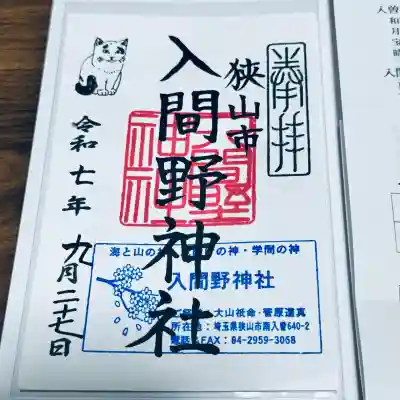 奉拝
狭山市
入間野神社
令和七年 九月二十七日
入間野神社
海と山の
の神・学問の神
入間野神社
大山祇命・菅原道真
所在地：埼玉県狭山市南入曽640-2
電話・FAX：04-2959-3068
入曽